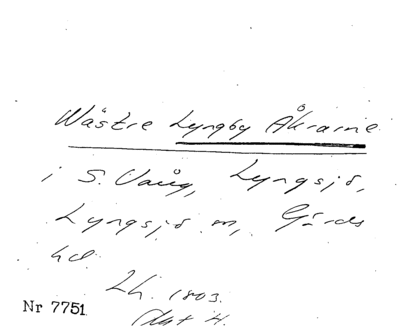 Wästre Lyngby Åkrarne
i S. Vång, Lyngsjö,
Lyngsjö sn, Gärds
hd.
Lh. 1803.
Akt 4.
Nr 7751